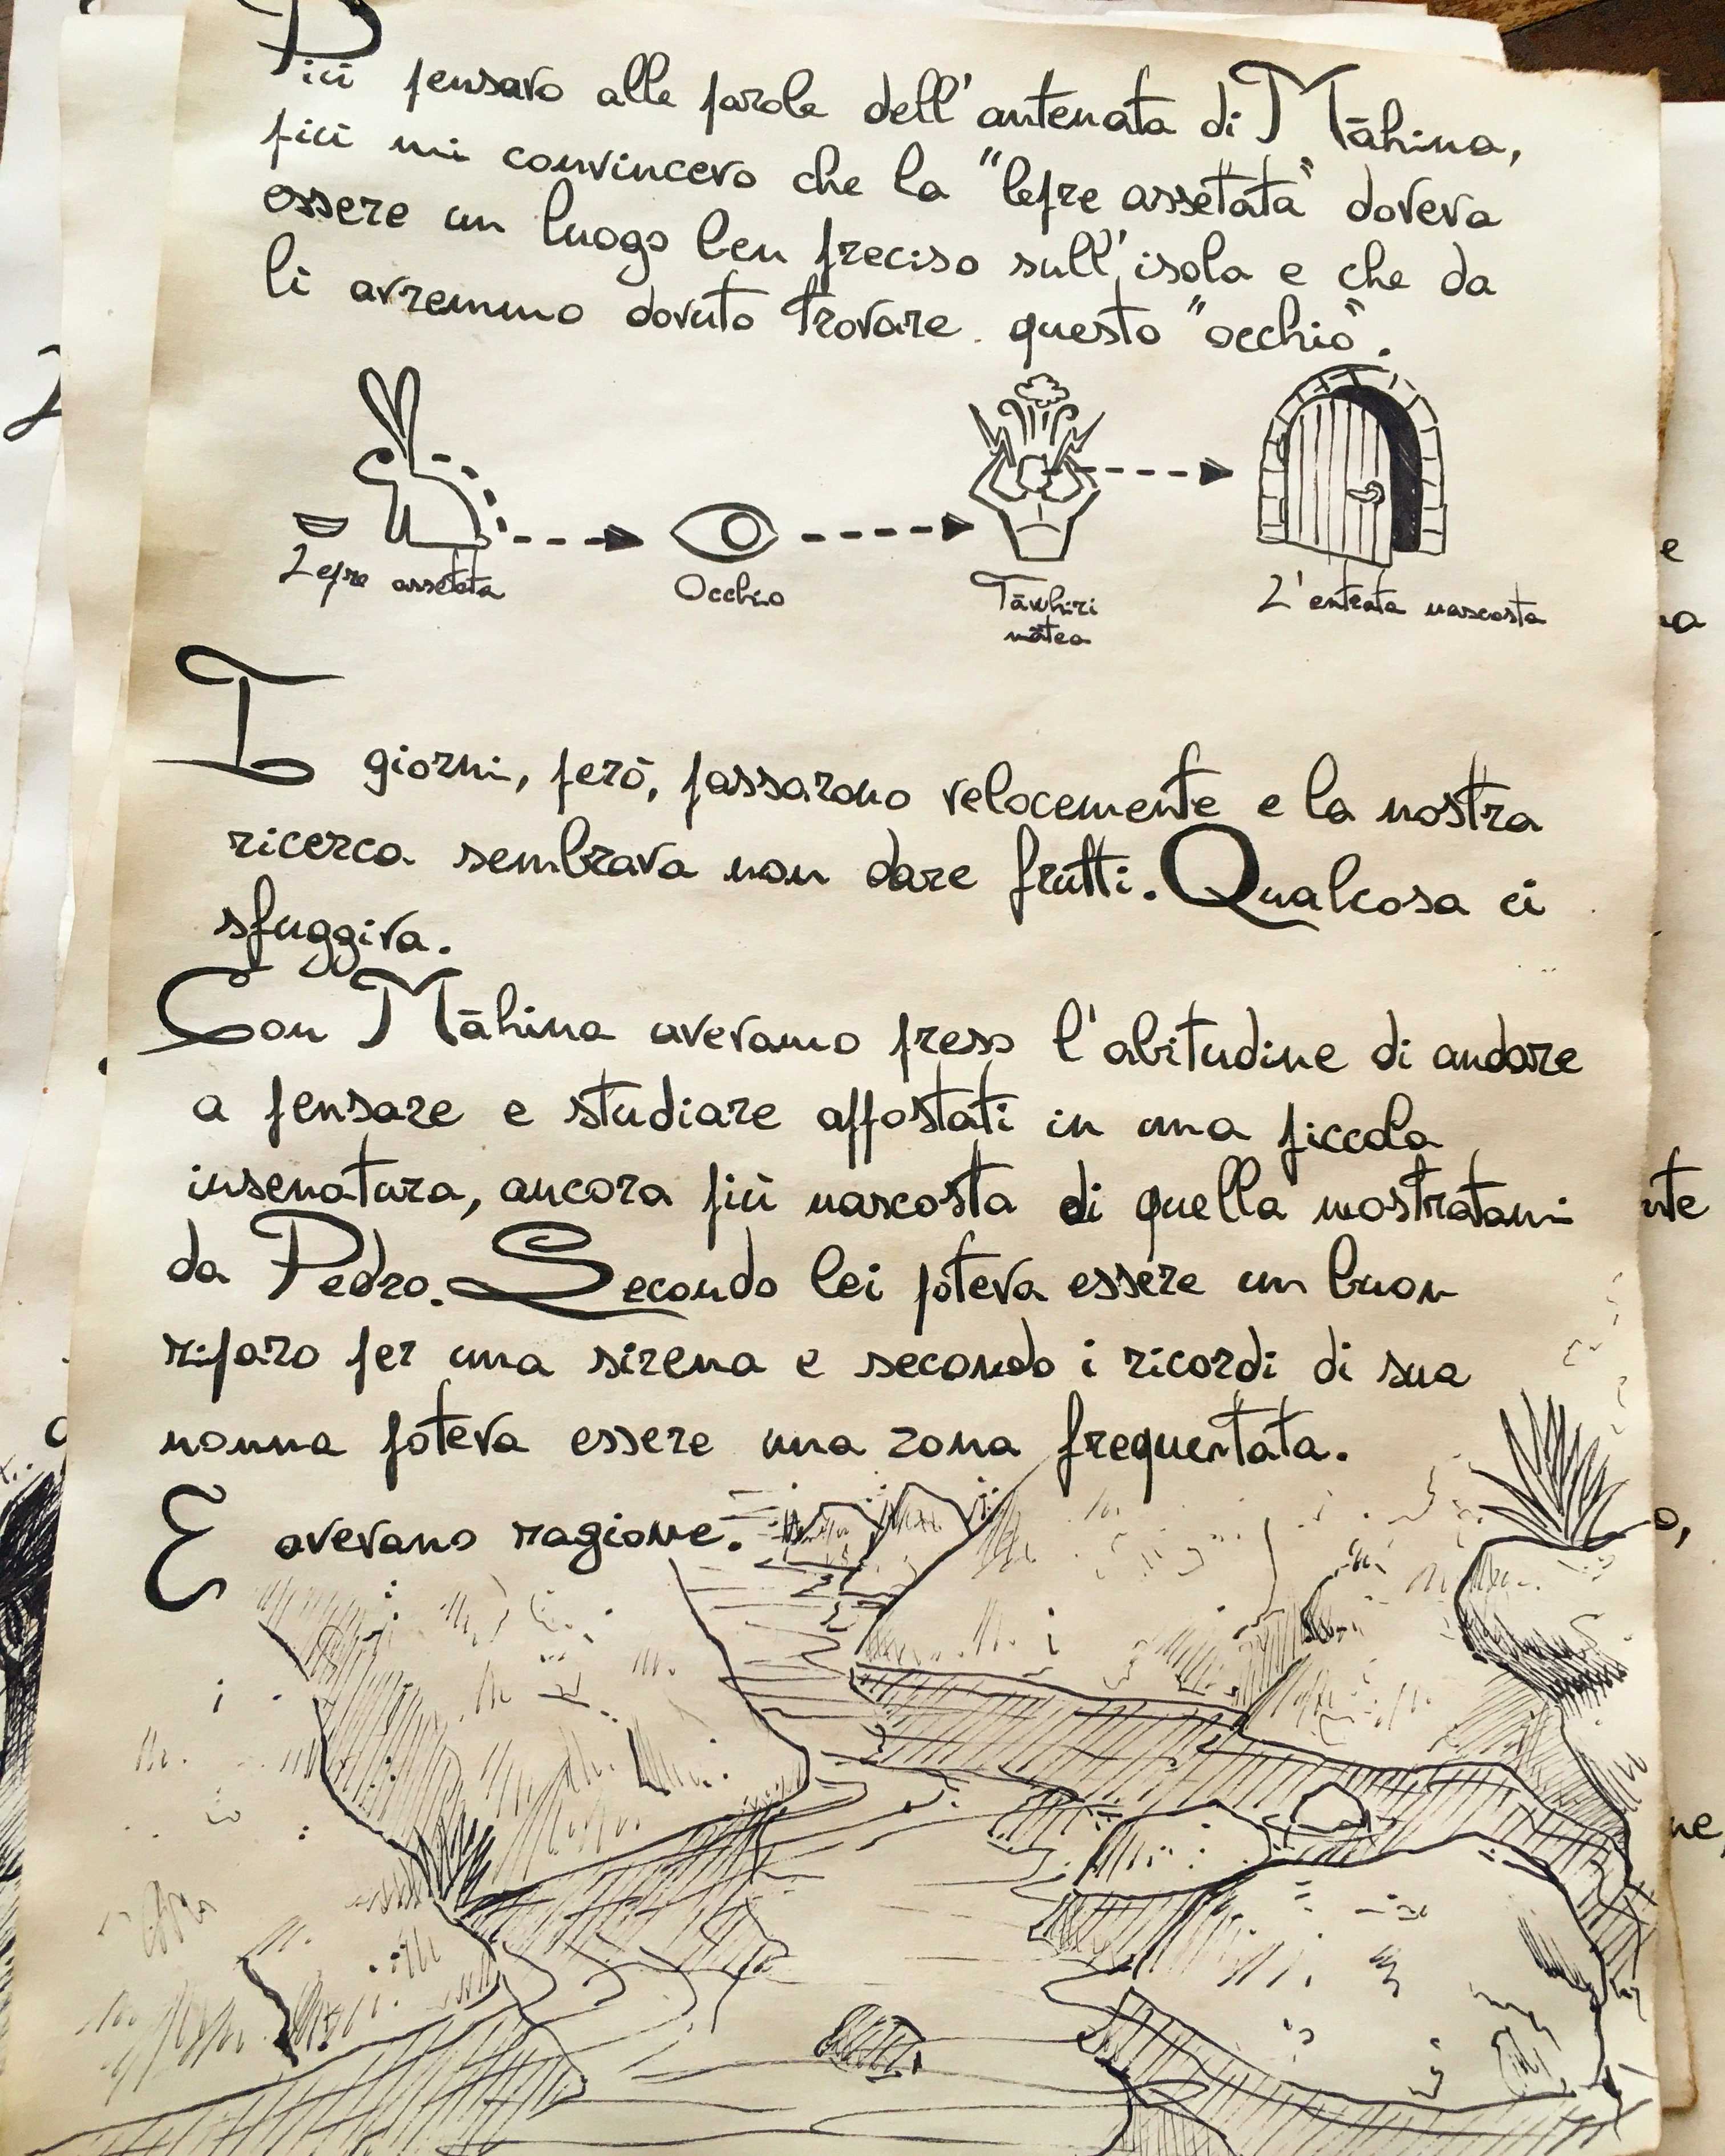 Più pensavo alle parole dell'antenata di Māhina,
più mi convincevo che la "lepre assetata" doveva
essere un luogo ben preciso sull'isola e che da
lì avremmo dovuto trovare questo "occhio".
Lepre assetata
Occhio
Tāwhiri
mātea
L'entrata nascosta
I giorni, però, passarono velocemente e la nostra
ricerca sembrava non dare frutti. Qualcosa ci
sfuggiva.
Con Māhina avevamo preso l'abitudine di andare
a pensare e studiare appostati in una piccola
insenatura, ancora più nascosta di quella mostratami
da Pedro. Secondo lei poteva essere un buon
riparo per una sirena e secondo i ricordi di sua
nonna poteva essere una zona frequentata.
E avevano ragione.